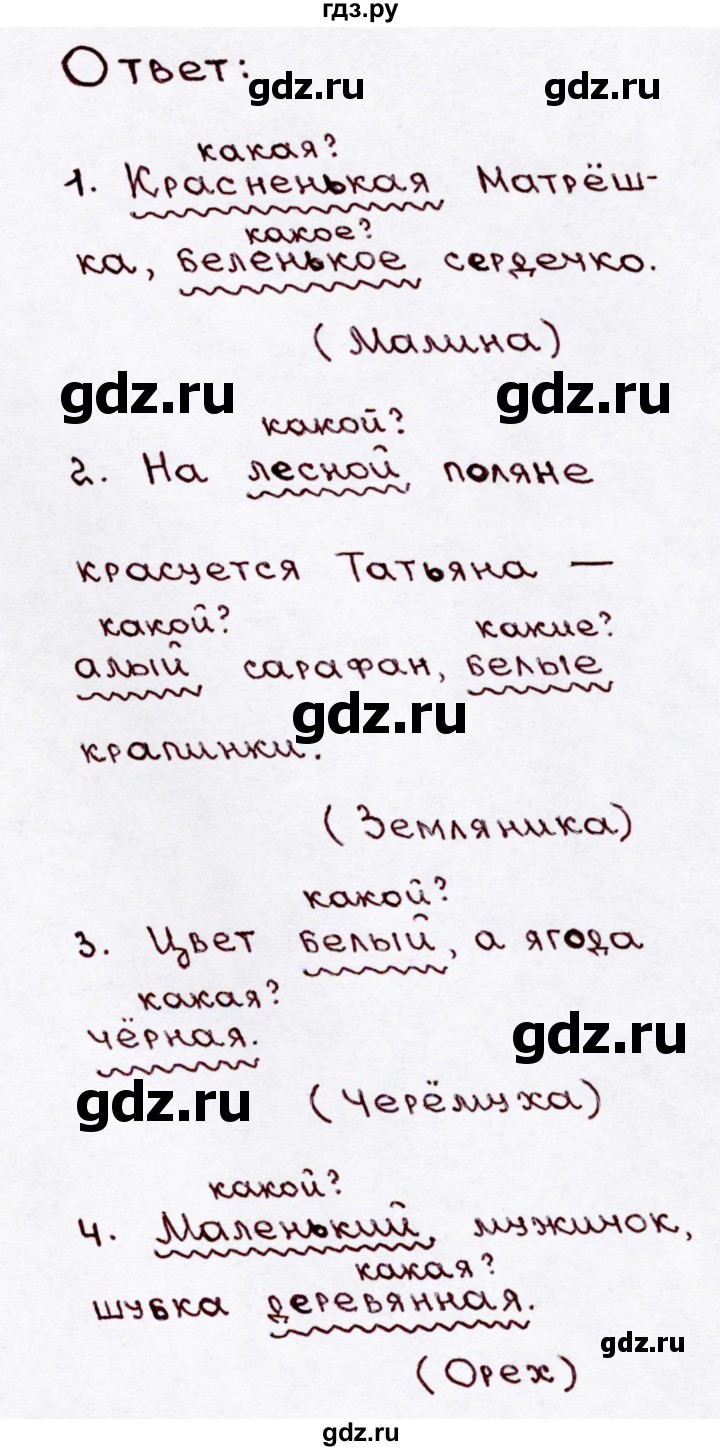 гдз.ру
Ответ:
gdz.ru gdz.ru
какая?
1. Красненькая Матрёш-
какое?
ка, беленькое сердечко.
(Малина)
gdz.ru gdz.ru
какой?
2. На лесной поляне
красуется Татьяна —
какой? какие?
алый сарафан, белые
gdz.ru
крапинки.
(Земляника)
какой?
3. Цвет белый, а ягода
какая?
чёрная.
gdz.ru
gdz.ru
(Черёмуха)
какой?
4. Маленький мужичок,
какая?
шубка деревянная.
gdz.ru
(Орех)
gdz.ru